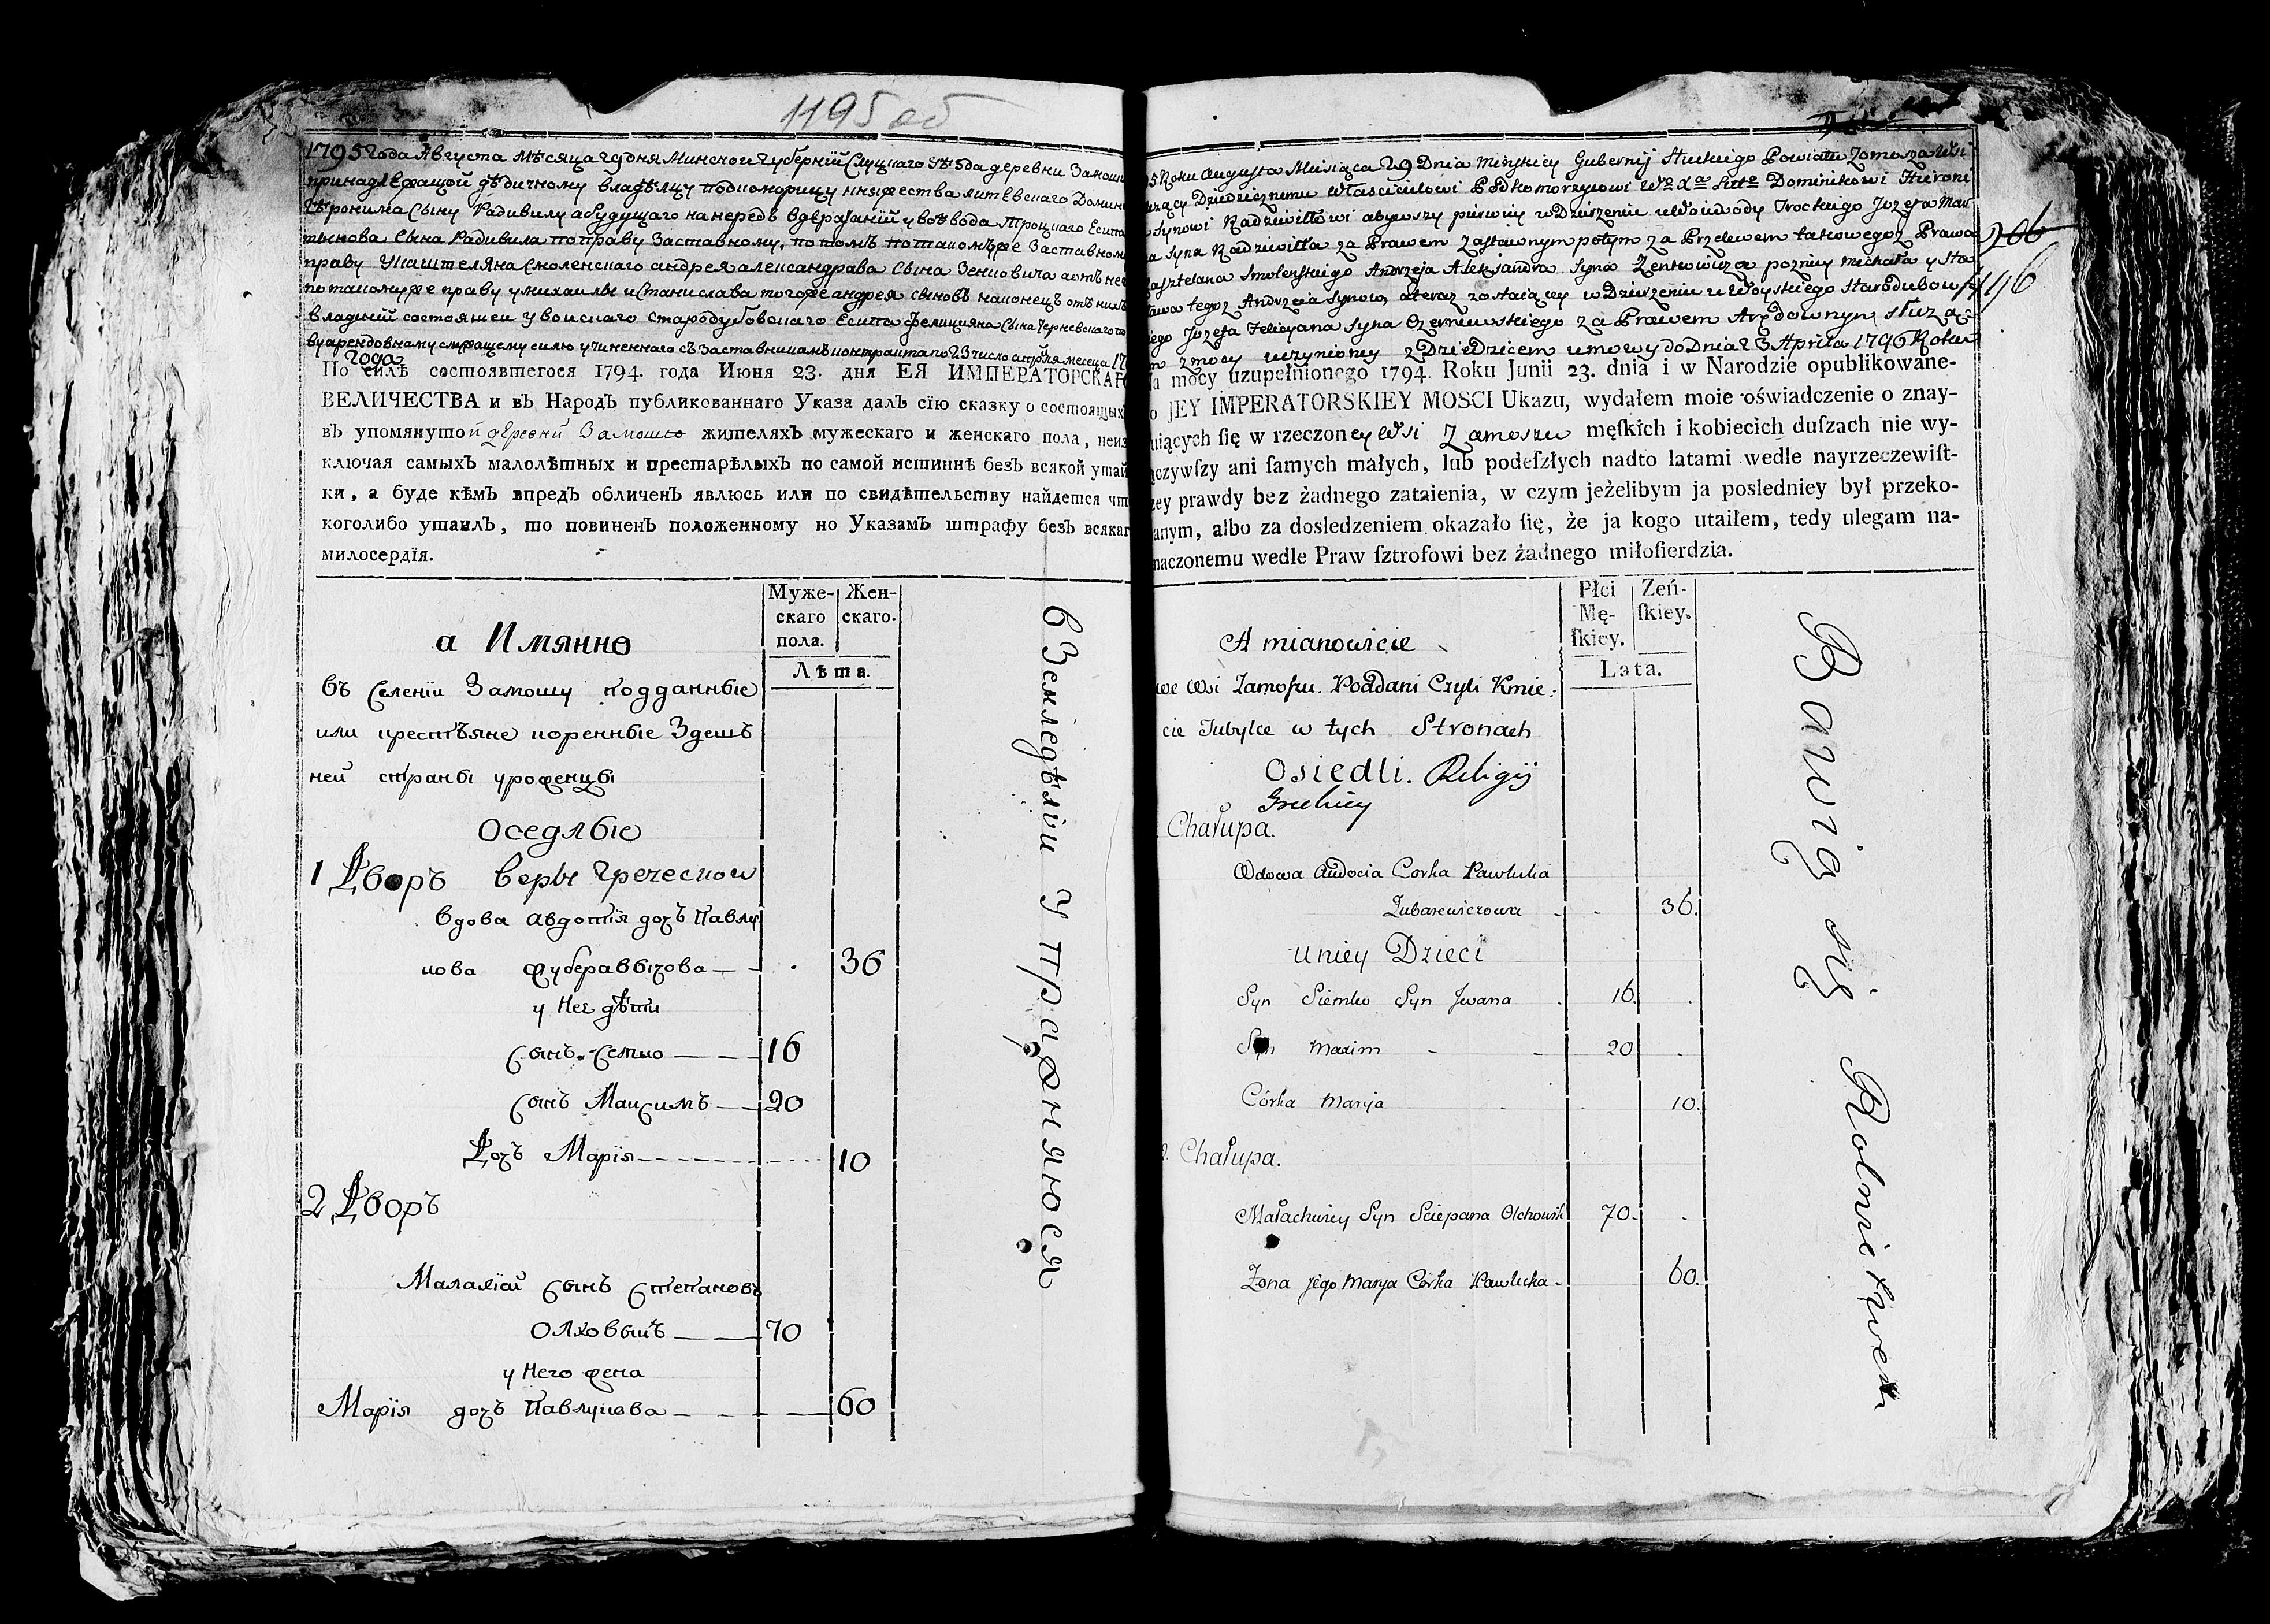 1195 об
1795 года Августа Мѣсяца 29 дня Минской Губернїи Слуцкаго уѣзда деревни Замошя
принадлежащой дѣдичному владѣльцу подкоморицу княжества литевскаго Домини
Геронима Сыну Радивилу а будущаго напередъ вдержанїй у воевода Троцкаго Есипа
тынова Сына Радивила по праву Заставному, потомъ по такомуже Заставном
праву Укаштеляна Смоленскаго андрея александрава Сына Зенковича а отъ нег
по такомуже праву у михаилы и Станислава тогоже андрея сыновъ наконецъ отъ нихъ
владнїй состоящей у воискаго Стародубовскаго Есипа Фелицияна Сына Черневскаго по
ву арендовному служащему силою учиненнаго съ Заставникамъ контракта по 23 число апрѣля месеца 17
года
По силѣ состоявшегося 1794. года Июня 23. дня ЕЯ ИМПЕРАТОРСКАГ
ВЕЛИЧЕСТВА и въ Народъ публикованнаго Указа далъ сїю сказку о состоящихъ
въ упомянутой деревнй Замошье жителяхъ мужескаго и женскаго пола, неиз
ключая самыхъ малолѣтныхъ и престарѣлыхъ по самой истиннѣ безъ всякой утай
ки, а буде кѣмъ впредъ обличенъ явлюсь или по свидѣтельству найдется чт
коголибо утаилъ, то повиненъ положенному по Указамъ штрафу безъ всякаг
милосердїя.
Муже-
скаго
пола.
Жен-
скаго.
Лѣта.
а Имянно
въ Селенїи Замошу подданные
или крестьяне коренные Здешъ
ней страны уроженцы
Оседлые
1 Дворъ веры Греческой
вдова авдотїя дочъ Павлу
кова Жуберавычова 36
у Нее дѣти
Сынъ Семко 16
Сынъ Максимъ 20
Дочъ Марїя 10
2 Дворъ
Малахїей Сынъ Степановъ
Олховыкъ 70
у Него жена
Марїя дочъ Павлукова 60
в Земледѣлїи упражняются
5 Roku Augusta Miesiąca 29 Dnia Mińskiey Gubernij Słuckiego Powiatu Zamosza Wsi
żący Dziedzicznemu Właścicielowi Podkomorzycowi Wo Xa Litto Dominikowi Hieroni
Synowi Radziwiłłowi abywszy pierwiey w Dzierżeniu u Woiewody Trockiego Jozefa Mar
a Syna Radziwiłła za Prawem zastawnym potym za Przelewem takowegoż Prawa
asztelana Smoleńskiego Andrzeja Alexandra Syna Zenkowicza pozniey Michała y Sta
ława tegoż Andrzeia Synow, ateraz zostaiącey w Dzierżeniu u Woyskiego Starodubows
iego Jozefa Felicyana Syna Czerniewskiego za Prawem Arędownym służą
m z mocy uczynioney z Dziedzicem umowy do Dnia 23 Aprila 1796 Roku
266
1196
a mocy uzupełnionego 1794. Roku Junii 23. dnia i w Narodzie opublikowane-
o JEY IMPERATORSKIEY MOSCI Ukazu, wydałem moie oświadczenie o znay-
uiących ſię w rzeczoney Wsi Zamoszu męſkich i kobiecich duſzach nie wy-
ączywſzy ani ſamych małych, lub podeſzłych nadto latami wedle nayrzeczewiſt-
zey prawdy bez żadnego zataienia, w czym jeżelibym ja posledniey był przeko-
anym, albo za dosledzeniem okazało ſię, że ja kogo utaiłem, tedy ulegam na-
naczonemu wedle Praw ſztrofowi bez żadnego miłoſierdzia.
Płci
Mę-
ſkiey.
Zeń-
ſkiey.
Lata.
A mianowicie
we Wsi Zamoſzu. Poddani Czyli Kmie-
cie Tubylce w tych Stronach
Osiedli. Religij
Greckiey
Chałupa.
Wdowa Audocia Corka Pawluka
Zubarewiczowa 36.
u niey Dzieci
Syn Siemko Syn Jwana 16
Syn Maxim 20
Córka Maryja 10.
Chałupa.
Małachwiey Syn Sciepana Olchowik 70.
Żona jego Marya Córka Pawluka 60.
Bawią się Rolnictwem